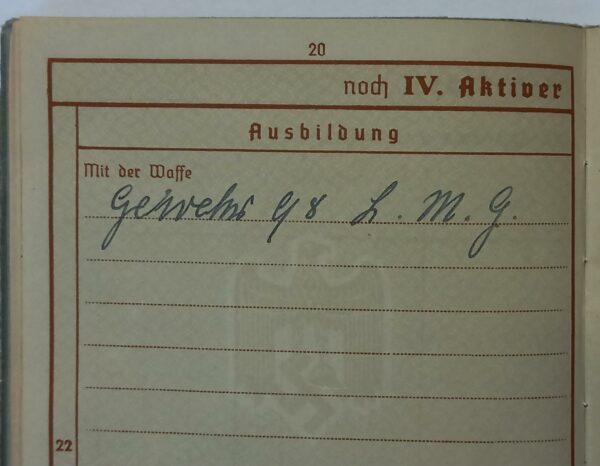 20
noch IV. Aktiver
Ausbildung
Mit der Waffe
Gewehr 98 L. M. G.
22